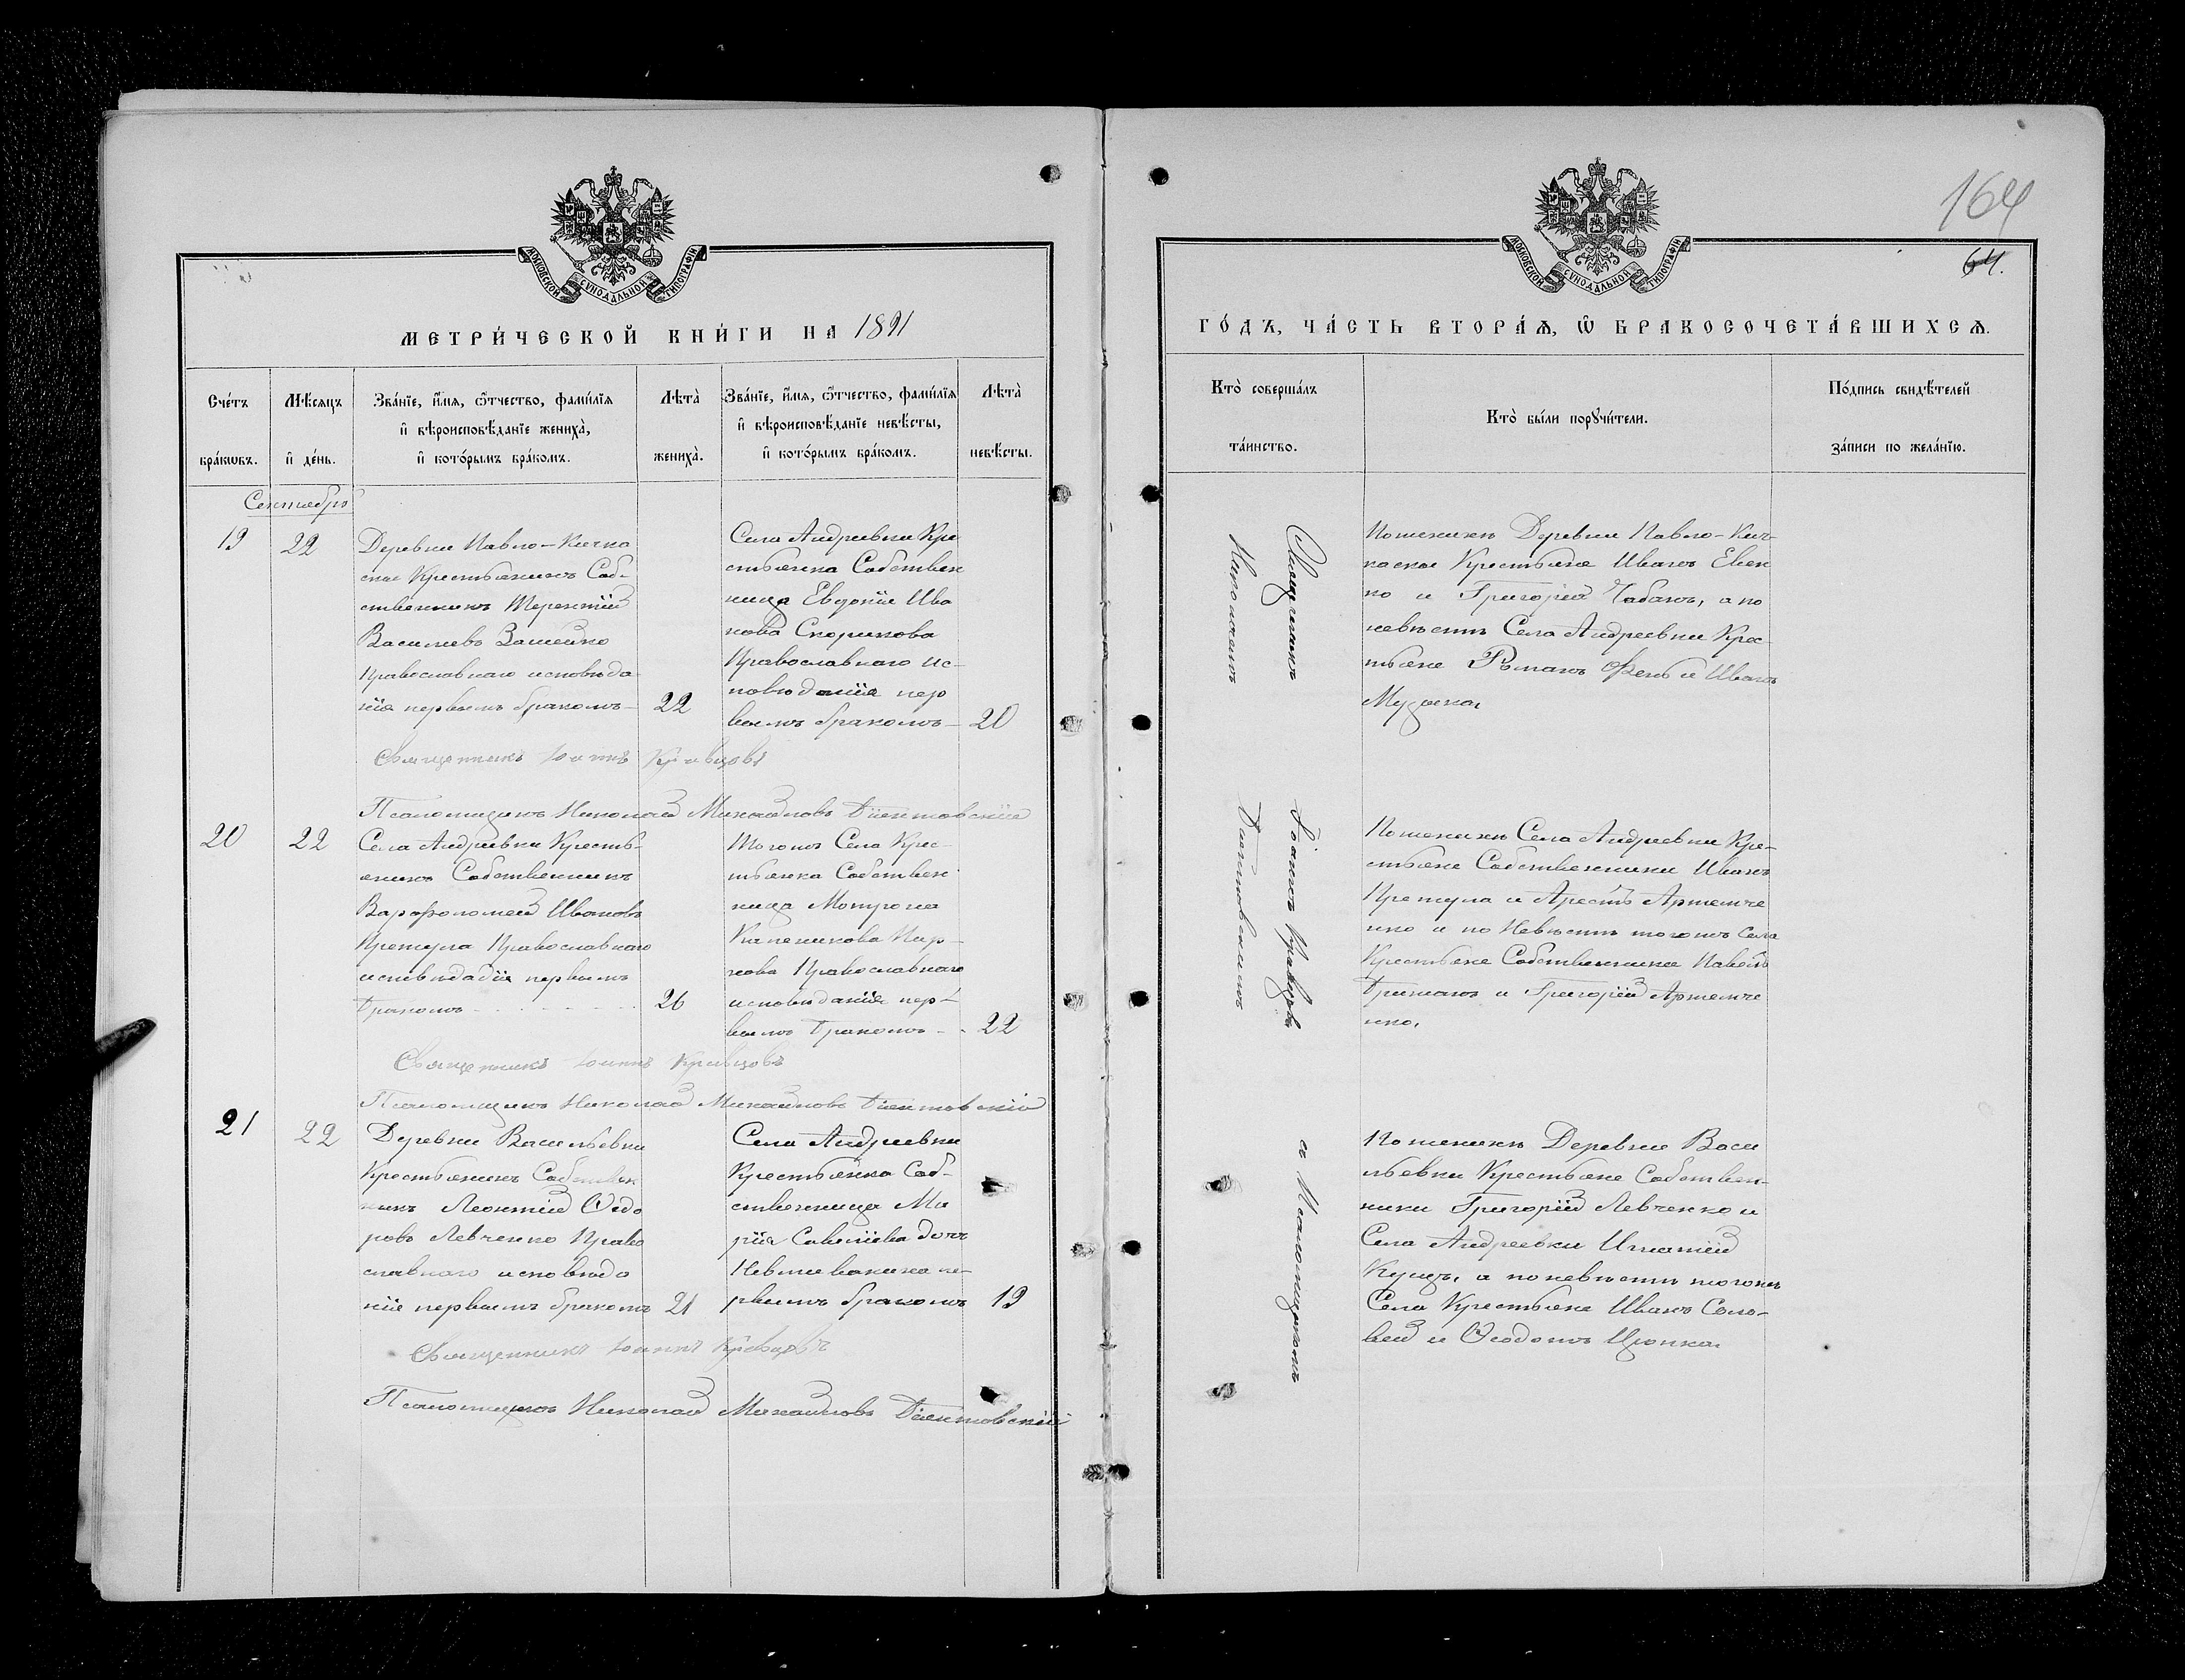 164
64.
МОСКОВСКОЙ СѴНОДАЛЬНОЙ ТИПОГРАФІИ
МЕТРИ́ЧЕСКОЙ КНИ́ГИ НА 1891
Сче́тъ бра́кѡвъ.
Мѣ́сяцъ и҆ де́нь.
Зва́нїе, и҆́мѧ, ѻ҆́тчество, фами́лїѧ
и҆ вѣроисповѣ́данїе жениха̀,
и҆ кото́рымъ бра́комъ.
Лѣта̀ жениха̀.
Зва́нїе, и҆́мѧ, ѻ҆́тчество, фами́лїѧ
и҆ вѣроисповѣ́данїе невѣ́сты,
и҆ кото́рымъ бра́комъ.
Лѣта̀ невѣ́сты.
Сентябрь
19
22
Деревни Павло-Кичка
ские Крестьянинъ Соб-
ственникъ Терентій
Васильевъ Зашейко
Православнаго исповѣда
нія первымъ бракомъ
22
Села Андреевки Кре
стьянка Собствен
ница Евдокія Ива
нова Скорикова
Православнаго ис-
повѣданія пер
вымъ бракомъ
20
Священникъ Іоаннъ Кравцовъ
Псаломщикъ Николай Михайловъ
20
22
Села Андреевки Кресть-
янинъ Собственникъ
Варфоломей Ивановъ
Претула Православнаго
исповѣдадія первымъ
Бракомъ
26
Тогожъ Села Крес-
тьянка Собствен
ница Мотрона
Православнаго
исповѣданія пер-
вымъ Бракомъ
22
Священникъ Іоаннъ Кравцовъ
Псаломщикъ Николай Михайловъ
21
22
Деревни Васильевки
Крестьянинъ Собствен
никъ Леонтій Ѳедо
ровъ Левченко Право
славнаго исповѣда
нія первымъ бракомъ
21
Села Андреевки
Крестьянка Соб-
ственница Ма
рія Савеліева дочь
пе-
рвымъ бракомъ
19
Священникъ Іоаннъ Кравцовъ
Псаломщикъ Николай Михайловъ
МОСКОВСКОЙ СѴНОДАЛЬНОЙ ТИПОГРАФІИ
ГО́ДЪ, ЧА́СТЬ ВТОРА́Ѧ, Ѡ҆ БРАКОСОЧЕТА́ВШИХСѦ.
Кто̀ соверша́лъ
та́инство.
Кто̀ бы́ли порꙋчи́тели.
По́дпись свидѣ́телей
за́писи по жела́нїю.
Священникъ Іоаннъ Кравцовъ и Псаломщикъ
Николаемъ
Поженихѣ Деревни Павло-Кич-
каские Крестьяне Иванъ Евен
ко и Григорій Чабанъ, а по
невѣстѣ Села Андреевки Крес
тьяне Романъ Фень и Иванъ
Музыка.
Поженихѣ Села Андреевки Кре-
стьяне Собственники Иванъ
Претула и Арестъ Артемче
нко и по Невѣстѣ тогожъ Села
Крестьяне Собственники Павелъ
Гришанъ и Григорій Артемче
нко.
Поженихѣ Деревни Васи
льевки Крестьяне Собствен-
ники Григорій Левченко и
Села Андреевки Игнатій
Куцъ, а поневѣстѣ тогожъ
Села Крестьяне Иванъ Соло-
вей и Ѳеодотъ Цюпка.